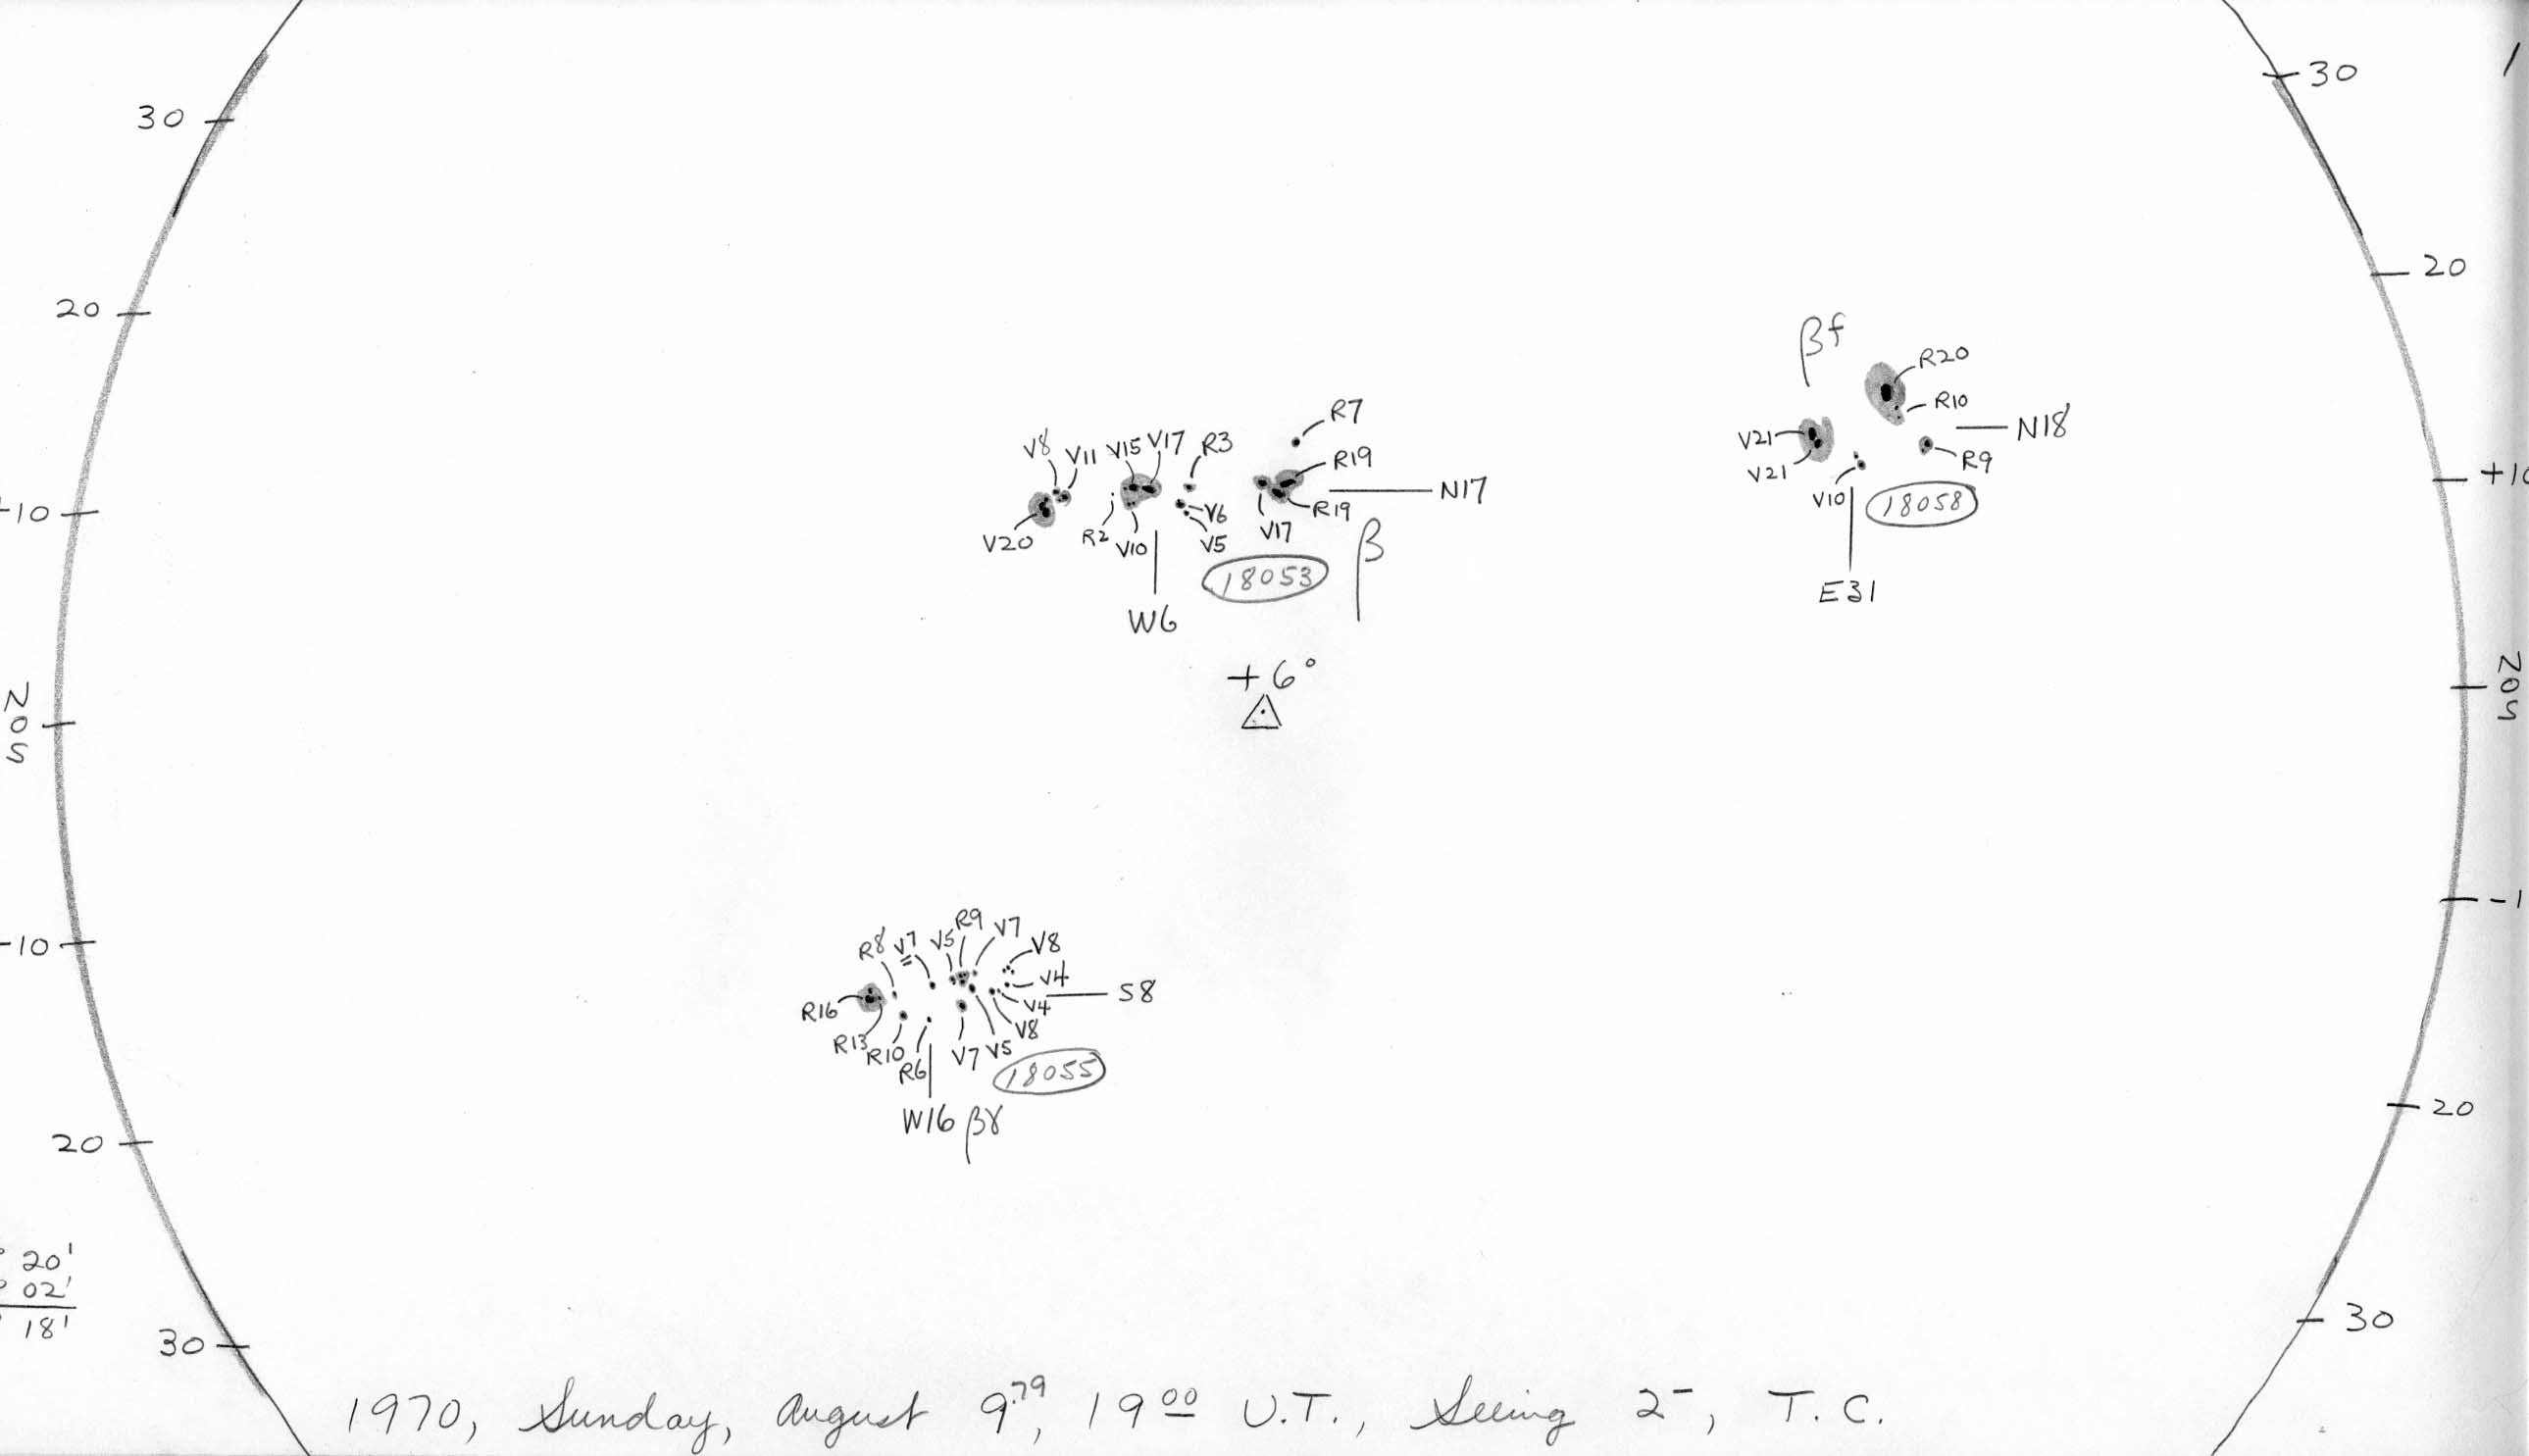 30
30
/
20
20
+10
+10
N
0
S
N
0
S
-10
-1
20
20
30
30
βf
R20
R10
N18
V21
V21
R9
V10
18058
E31
R7
V8
V11
V15
V17
R3
R19
N17
V20
R2
V10
V6
V5
V17
R19
β
18053
W6
+6°
R8
V7
V5
R9
V7
V8
V4
S8
R16
V4
R13
R10
R6
V7
V5
V8
18055
W16 βγ
20'
02'
18'
1970, Sunday, August 9.79, 19 00 U.T., Seeing 2-, T.C.